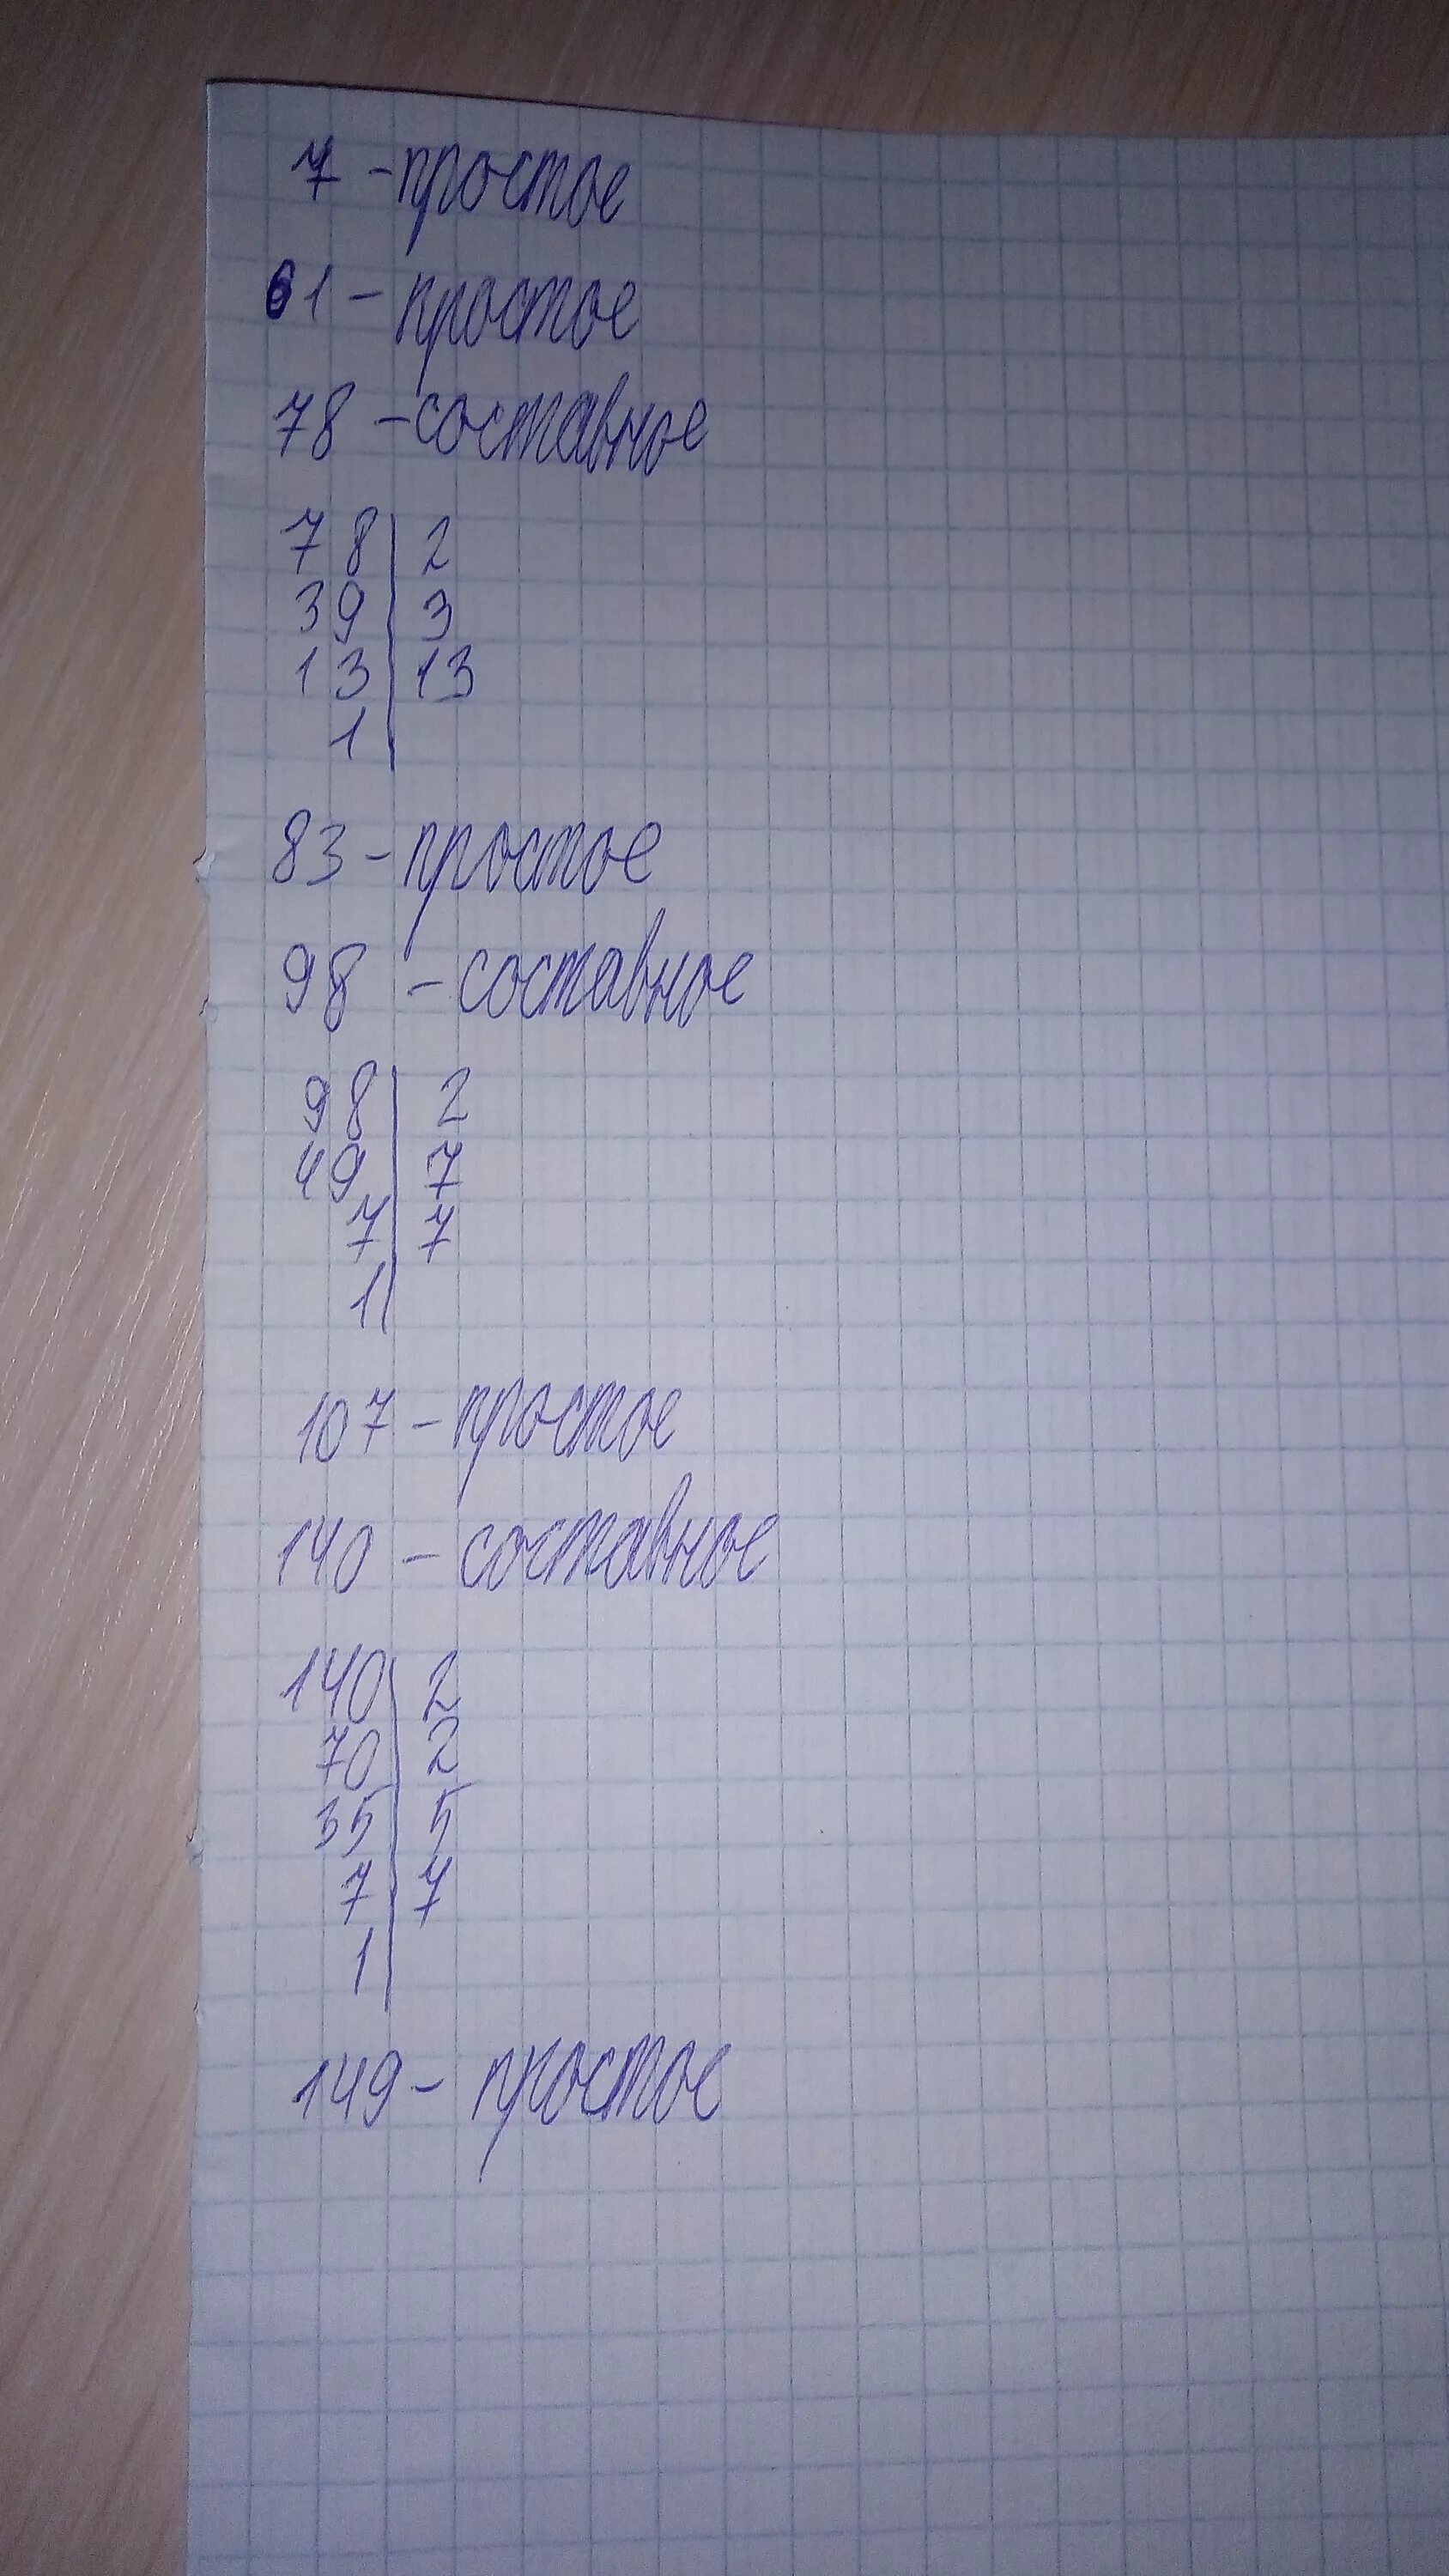 7 - простое
61 - простое
78 - составное
78 | 2
39 | 3
13 | 13
1 |
83 - простое
98 - составное
98 | 2
49 | 7
7 | 7
1 |
107 - простое
140 - составное
140 | 2
70 | 2
35 | 5
7 | 7
1 |
149 - простое